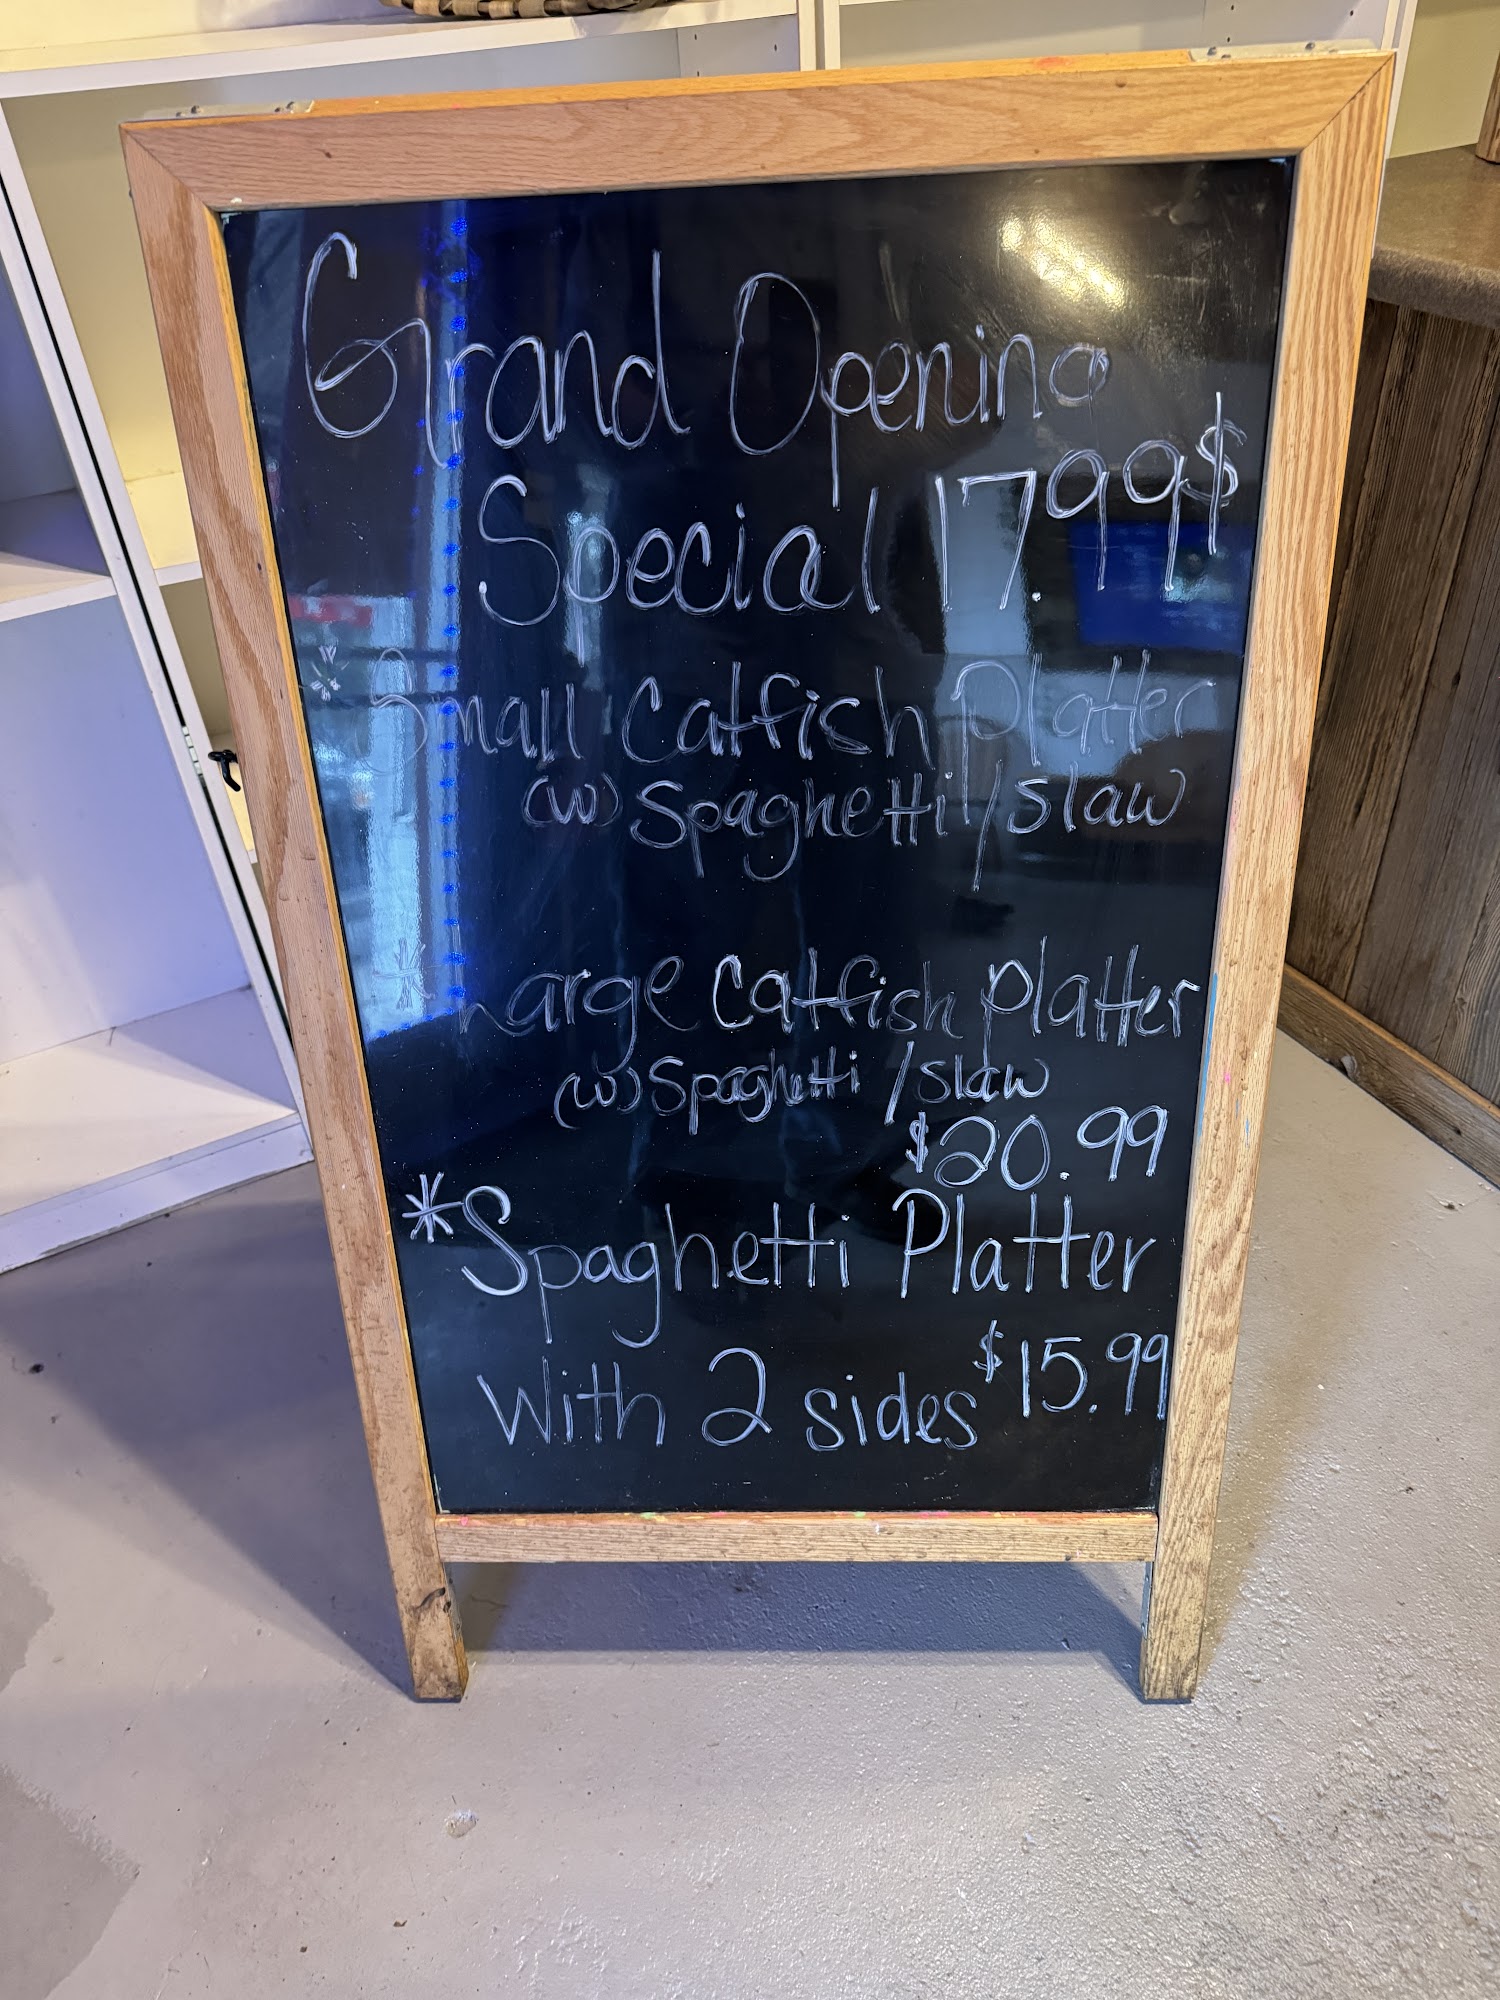 Grand Opening
Special 17.99$
* Small Catfish Platter
(w) Spaghetti / slaw
* Large Catfish Platter
(w) Spaghetti / slaw
$20.99
* Spaghetti Platter
With 2 sides $15.99